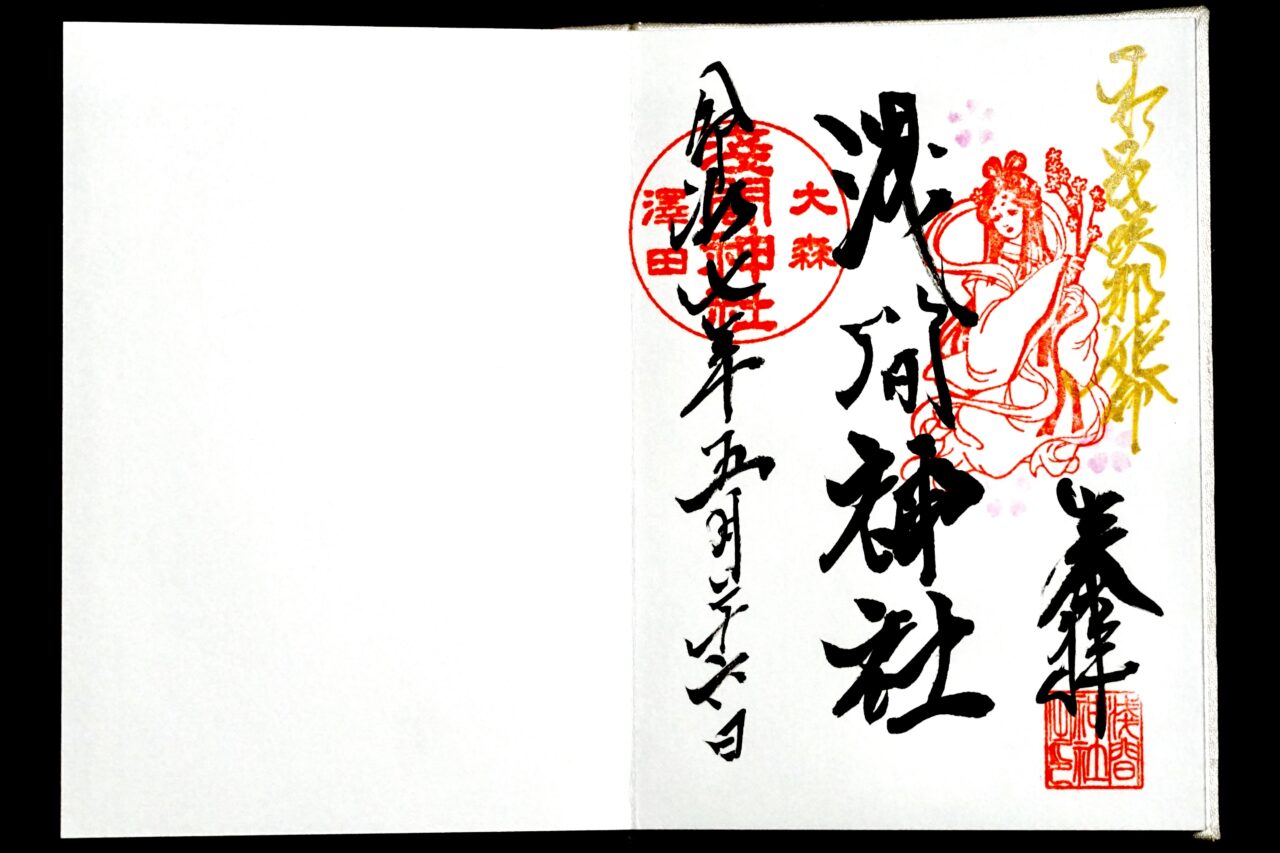 木花咲耶姫命
奉拝
浅間神社
大森
淺間神社
澤田
令和七年五月二十六日
浅間
神社
之印